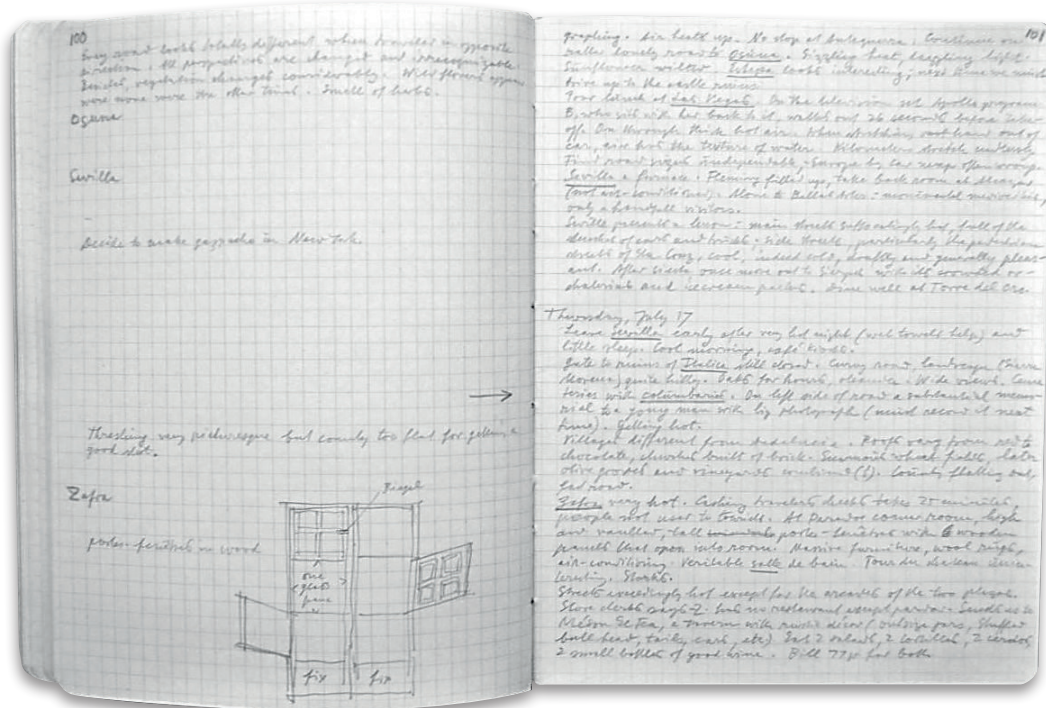 100
Every road looks totally different when travelled in opposite
direction. All perspectives are changed and unrecognizable.
Besides, vegetation changes considerably. Wild flowers appear
were none were the other time. Smell of herbs.
Osuna
Sevilla
Decide to make gazpacho in New York.
Threshing very picturesque but country too flat for getting a
good shot.
Zafra
porte-fenêtres in wood
one
glass
pane
fix fix
101
Air heats up. No stop at Antequera. Continue on
lonely road to Osuna. Sizzling heat, dazzling light.
Sunflowers wilted. Estepa looks interesting; next time we must
drive up to the castle ruins.
On the television set Apollo program.
B, who sits with her back to it, walks out 26 seconds before take-
off. On through thick hot air. When stretching out hand out of
car, air has the texture of water. Kilometers stretch endlessly.
Find road signs independable, Europe by Car maps often wrong.
Sevilla a furnace. Fleming filled up, take back room at
(not air-conditioned). Alone to Bellas Artes:
only a handful visitors.
Seville presents a lesson: main streets suffocatingly hot, full of the
of cars and trucks. Side streets, particularly the pedestrian
streets of Sta Cruz, cool, indeed cold, drafty and generally pleas-
ant. After siesta once more out to Sierpes with its crowded
and icecream parlors. Dine well at Torre del Oro.
Thursday, July 17
Leave Sevilla early after very hot night (wet towels help) and
little sleep. Cool morning, café kiosk.
Gate to ruins of Italica still closed. Curvy road, landscape (Sierra
Morena) quite hilly. Oaks for hours, oleander. Wide views. Ceme-
teries with columbaria. On left side of road a substantial memo-
rial to a young man with big photograph (must record it next
time). Getting hot.
Villages different from Andalucia. Roofs vary from red to
chocolate, churches built of brick. Summit wheat fields, later
olive groves and vineyards combined (!). Country flatting out.
Bad road.
Zafra very hot. Cashing travelers checks takes 25 minutes,
people not used to tourists. At Parador corner room, high
and vaulted, tall porte-fenêtres with 6 wooden
panels that open into room. Massive furniture, wool rugs,
air-conditioning. Veritable salle de bain. Tour du chateau
Storks.
Streets exceedingly hot except for the arcades of the two plazas.
Store clerks says 2 but no restaurant except parador. Sends us to
a tavern with rustic décor (outsize jars, stuffed
bull head, tails, cart, etc). Eat 2 salads, 2 costillas, 2 cerdos,
2 small bottles of good wine. Bill for both.